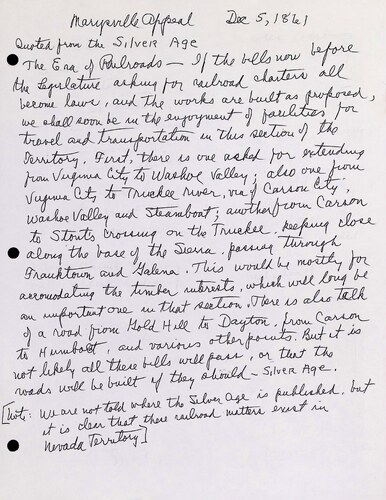 Marysville Appeal Dec 5, 1861
Quoted from the Silver Age
The Era of Railroads — If the bills now before
the Legislature asking for railroad charters all
become laws, and the works are built as proposed,
we shall soon be in the enjoyment of facilities for
travel and transportation in this section of the
Territory. First, there is one asked for extending
from Virginia City to Washoe Valley; also one from
Virginia City to Truckee River, via of Carson City,
Washoe Valley and Steamboat; another from Carson
to Stouts crossing on the Truckee, keeping close
along the base of the Sierra, passing through
Franktown and Galena. This would be mostly for
accomodating the timber interests, which will long be
an important one in that section. There is also talk
of a road from Gold Hill to Dayton, from Carson
to Humboldt, and various other points. But it is
not likely all these bills will pass, or that the
roads will be built if they should — Silver Age.
[Note: We are not told where the Silver Age is published, but
it is clear that these railroad matters exist in
Nevada Territory]